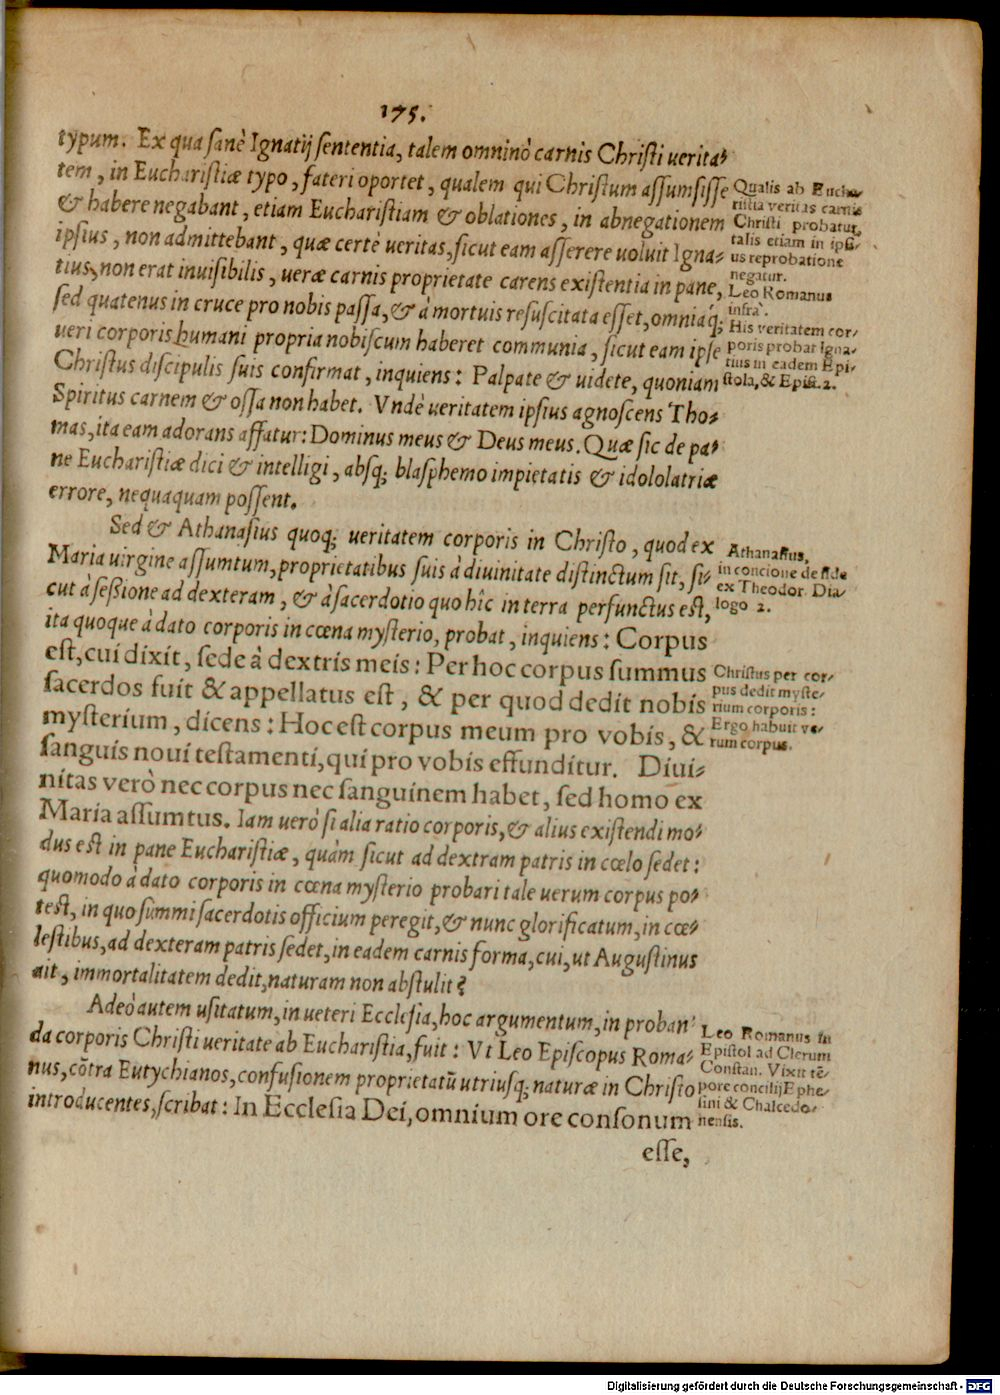 175.
typum. Ex qua sanè Ignatij sententia, talem omninò carnis Christi uerita-
tem, in Eucharistiæ typo, fateri oportet, qualem qui Christum assumsisse
& habere negabant, etiam Eucharistiam & oblationes, in abnegationem
ipsius, non admittebant, quæ certè ueritas, sicut eam asserere uoluit Igna-
tius, non erat inuisibilis, ueræ carnis proprietate carens existentia in pane,
sed quatenus in cruce pro nobis passa, & à mortuis resuscitata esset, omniaq́;
ueri corporis humani propria nobiscum haberet communia, sicut eam ipse
Christus discipulis suis confirmat, inquiens: Palpate & uidete, quoniam
Spiritus carnem & ossa non habet. Vndè ueritatem ipsius agnoscens Tho-
mas, ita eam adorans affatur: Dominus meus & Deus meus. Quæ sic de pa-
ne Eucharistiæ dici & intelligi, absq; blasphemo impietatis & idololatriæ
errore, nequaquam possent.
Qualis ab Eucha-
ristia veritas carnis
Christi probatur,
talis etiam in ipsi-
us reprobatione
negatur.
Leo Romanus
infrà.
His veritatem cor-
poris probat Igna-
tius in eadem Epi-
stola, & Epist. 2.
Sed & Athanasius quoq; ueritatem corporis in Christo, quod ex
Maria uirgine assumtum, proprietatibus suis à diuinitate distinctum sit, si-
cut à sessione ad dexteram, & à sacerdotio quo hîc in terra perfunctus est,
ita quoque à dato corporis in cœna mysterio, probat, inquiens: Corpus
est, cui dixit, sede à dextris meis: Per hoc corpus summus
sacerdos fuit & appellatus est, & per quod dedit nobis
mysterium, dicens: Hoc est corpus meum pro vobis, &
sanguis noui testamenti, qui pro vobis effunditur. Diui-
nitas verò nec corpus nec sanguinem habet, sed homo ex
Maria assumtus. Iam uerò si alia ratio corporis, & alius existendi mo-
dus est in pane Eucharistiæ, quàm sicut ad dextram patris in cœlo sedet:
quomodo à dato corporis in cœna mysterio probari tale uerum corpus po-
test, in quo summi sacerdotis officium peregit, & nunc glorificatum, in cœ-
lestibus, ad dexteram patris sedet, in eadem carnis forma, cui, ut Augustinus
ait, immortalitatem dedit, naturam non abstulit?
Athanasius,
in concione de fide
ex Theodor. Dia-
logo 2.
Christus per cor-
pus dedit myste-
rium corporis:
Ergo habuit ve-
rum corpus.
Adeò autem usitatum, in ueteri Ecclesia, hoc argumentum, in proban-
da corporis Christi ueritate ab Eucharistia, fuit: Vt Leo Episcopus Roma-
nus, cōtra Eutychianos, confusionem proprietatū utriusq; naturæ in Christo
introducentes, scribat: In Ecclesia Dei, omnium ore consonum
Leo Romanus in
Epistol ad Clerum
Constan. Vixit tē-
pore concilij Ephe-
sini & Chalcedo-
nensis.
esse,
Digitalisierung gefördert durch die Deutsche Forschungsgemeinschaft - DFG